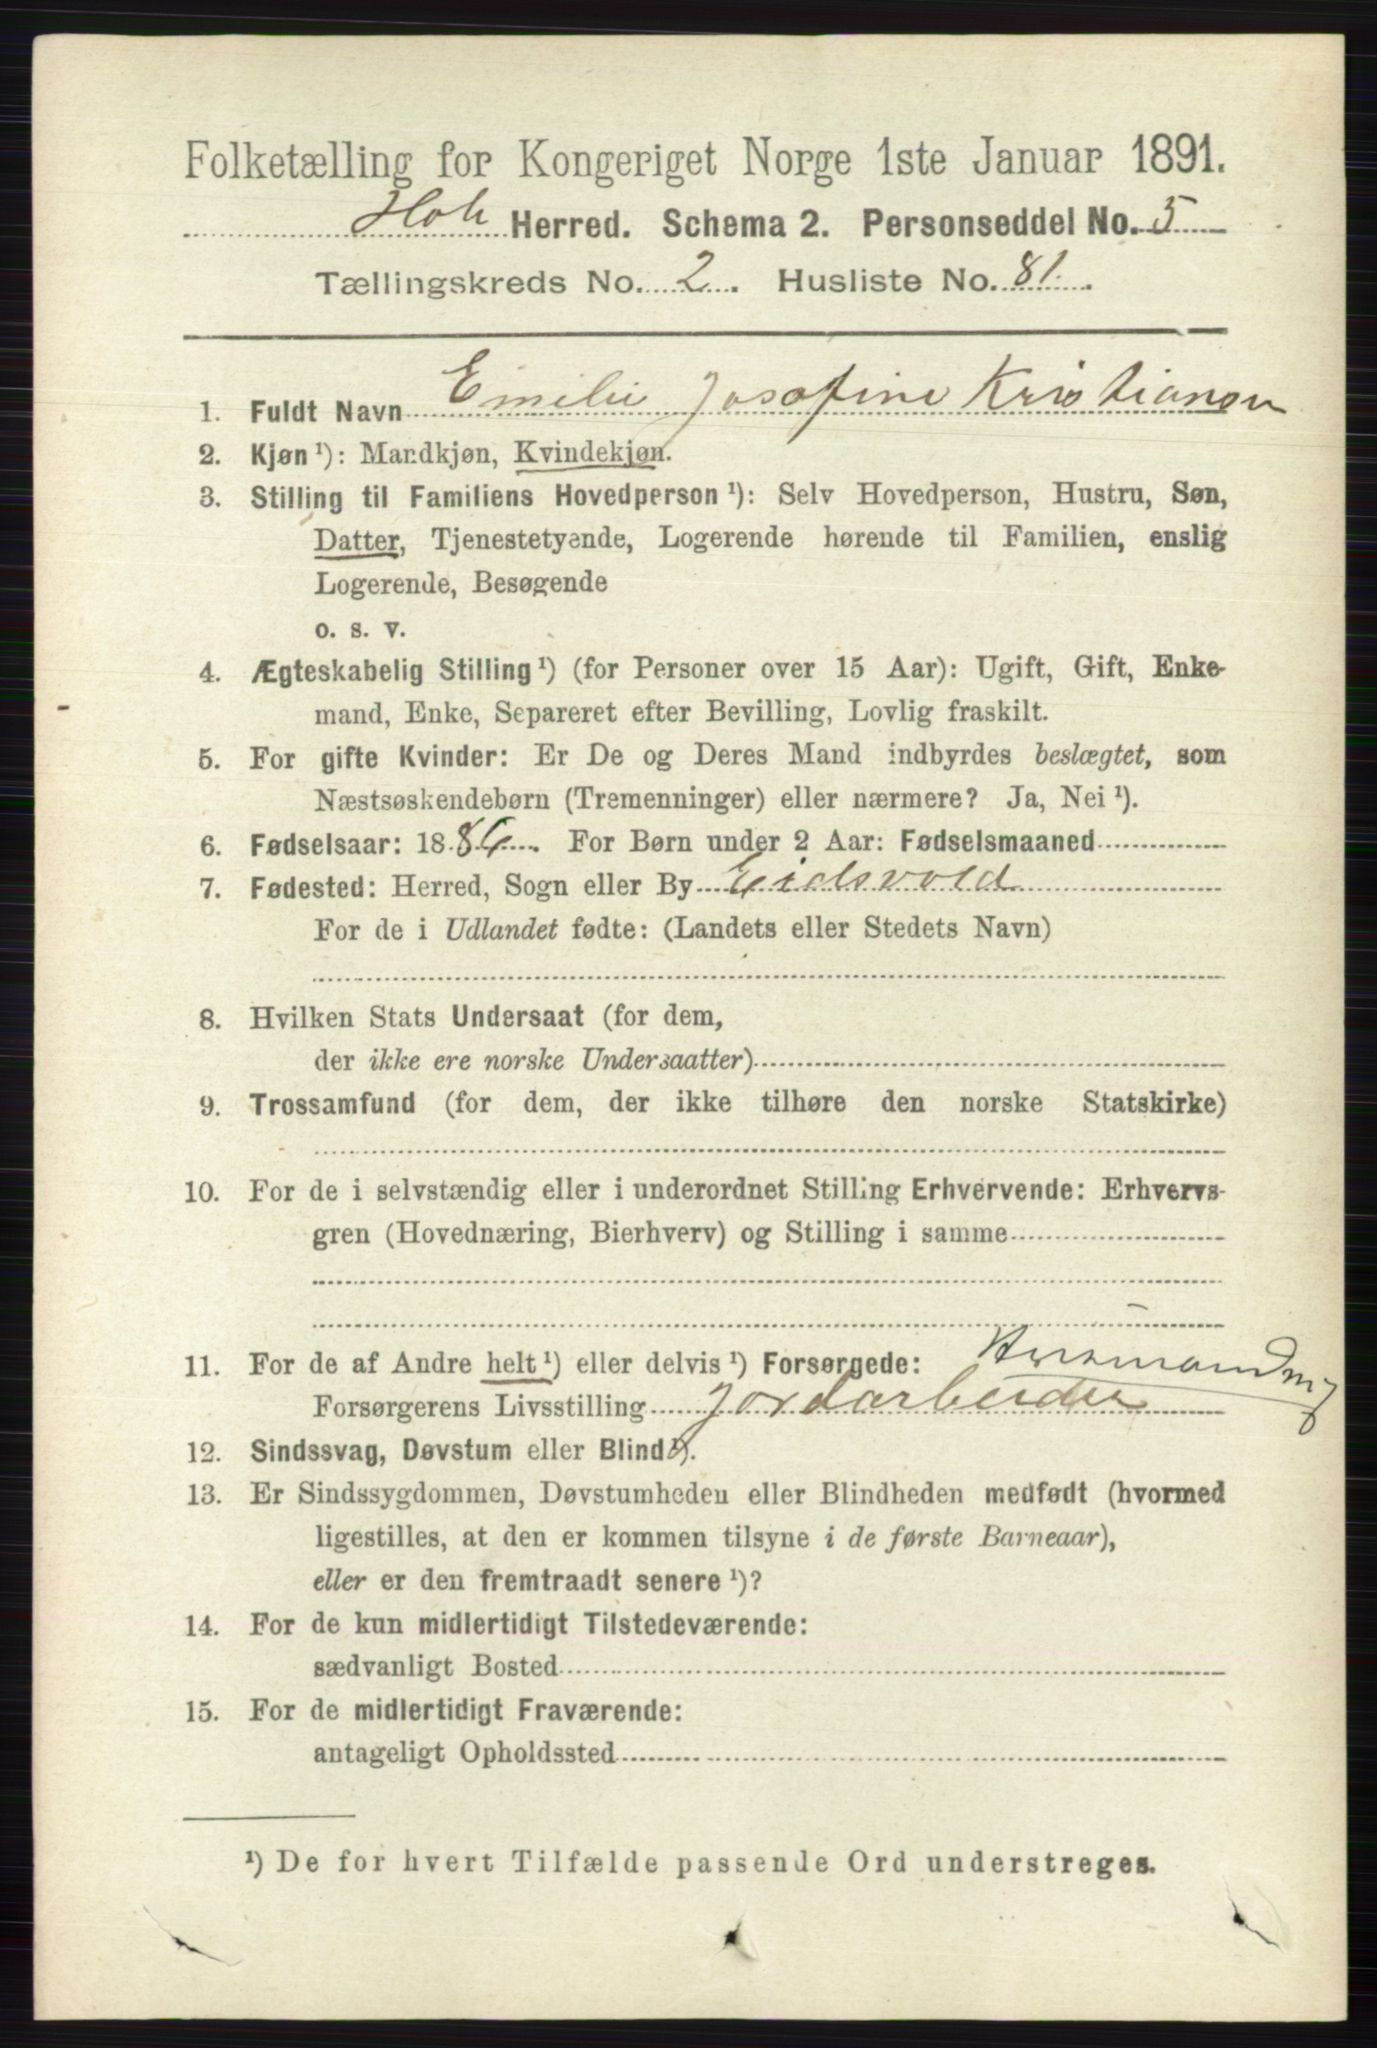 Folketælling for Kongeriget Norge 1ste Januar 1891.
Hole Herred. Schema 2. Personseddel No. 5
Tællingskreds No. 2. Husliste No. 81.
1. Fuldt Navn Emilie Josefine Kristiansen
2. Kjøn ¹): Mandkjøn, Kvindekjøn.
3. Stilling til Familiens Hovedperson ¹): Selv Hovedperson, Hustru, Søn,
Datter, Tjenestetyende, Logerende hørende til Familien, enslig
Logerende, Besøgende
o. s. v.
4. Ægteskabelig Stilling ¹) (for Personer over 15 Aar): Ugift, Gift, Enke-
mand, Enke, Separeret efter Bevilling, Lovlig fraskilt.
5. For gifte Kvinder: Er De og Deres Mand indbyrdes beslægtet, som
Næstsøskendebørn (Tremenninger) eller nærmere? Ja, Nei ¹).
6. Fødselsaar: 1886. For Børn under 2 Aar: Fødselsmaaned
7. Fødested: Herred, Sogn eller By Eidsvold
For de i Udlandet fødte: (Landets eller Stedets Navn)
8. Hvilken Stats Undersaat (for dem,
der ikke ere norske Undersaatter)
9. Trossamfund (for dem, der ikke tilhøre den norske Statskirke)
10. For de i selvstændig eller i underordnet Stilling Erhvervende: Erhvervs-
gren (Hovednæring, Bierhverv) og Stilling i samme
11. For de af Andre helt ¹) eller delvis ¹) Forsørgede: Husmand m j
Forsørgerens Livsstilling Jordarbeider
12. Sindssvag, Døvstum eller Blind ¹).
13. Er Sindssygdommen, Døvstumheden eller Blindheden medfødt (hvormed
ligestilles, at den er kommen tilsyne i de første Barneaar),
eller er den fremtraadt senere ¹)?
14. For de kun midlertidigt Tilstedeværende:
sædvanligt Bosted
15. For de midlertidigt Fraværende:
antageligt Opholdssted
¹) De for hvert Tilfælde passende Ord understreges.